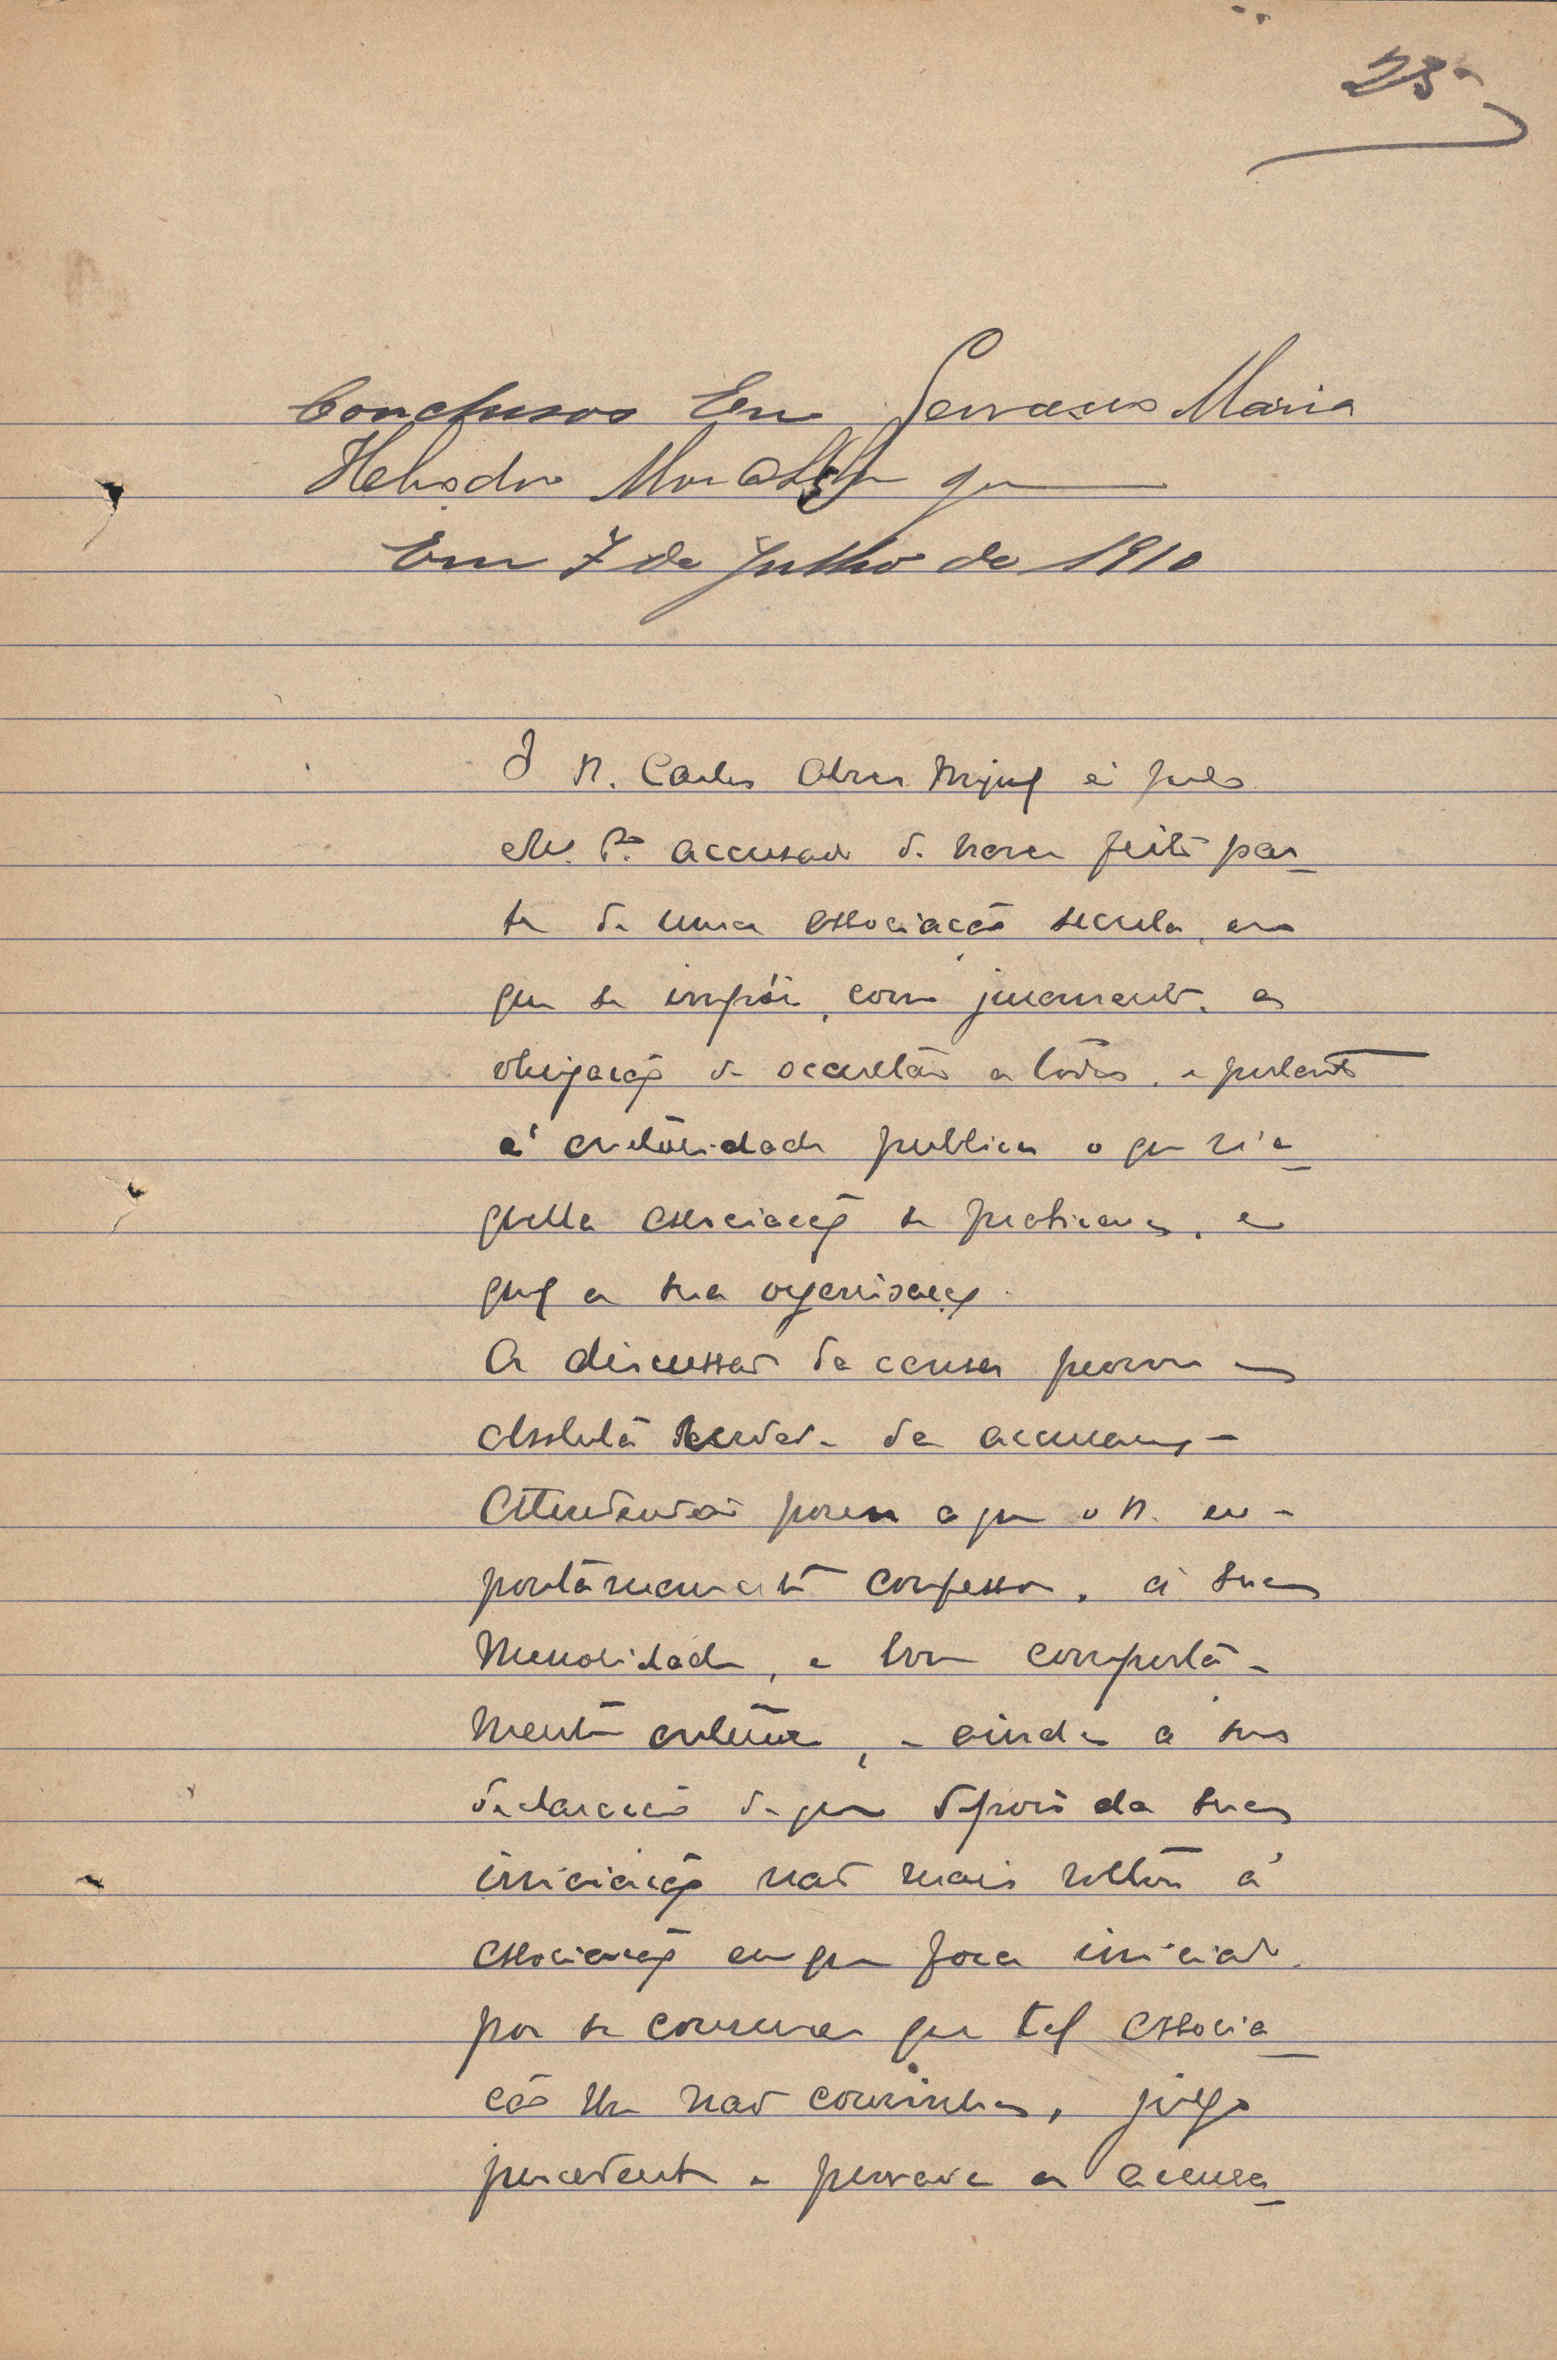 25
Conclusos Em Maria
Heliodoro
Em 7 de Julho de 1910
O R. Carlos Alves é pelo
M. P. accusado de haver feito par-
te de uma associação secreta, em
que se impõe, com juramento, a
obrigação de occultar a todos, e
á autoridade publica o que n'a-
quella associação se praticava, e
qual a sua organisação.
A discussão da causa provou a
absoluta verdade da accusação
Attendendo porem a que o R. es-
pontâneamente confessou, á sua
menoridade, e bom comporta-
mento anterior, e ainda a sua
declaração de que depois da sua
iniciação não mais voltou á
associação em que fora iniciado,
por se convencer que tal associa-
ção lhe não convinha, julgo
procedente e provada a accusa-